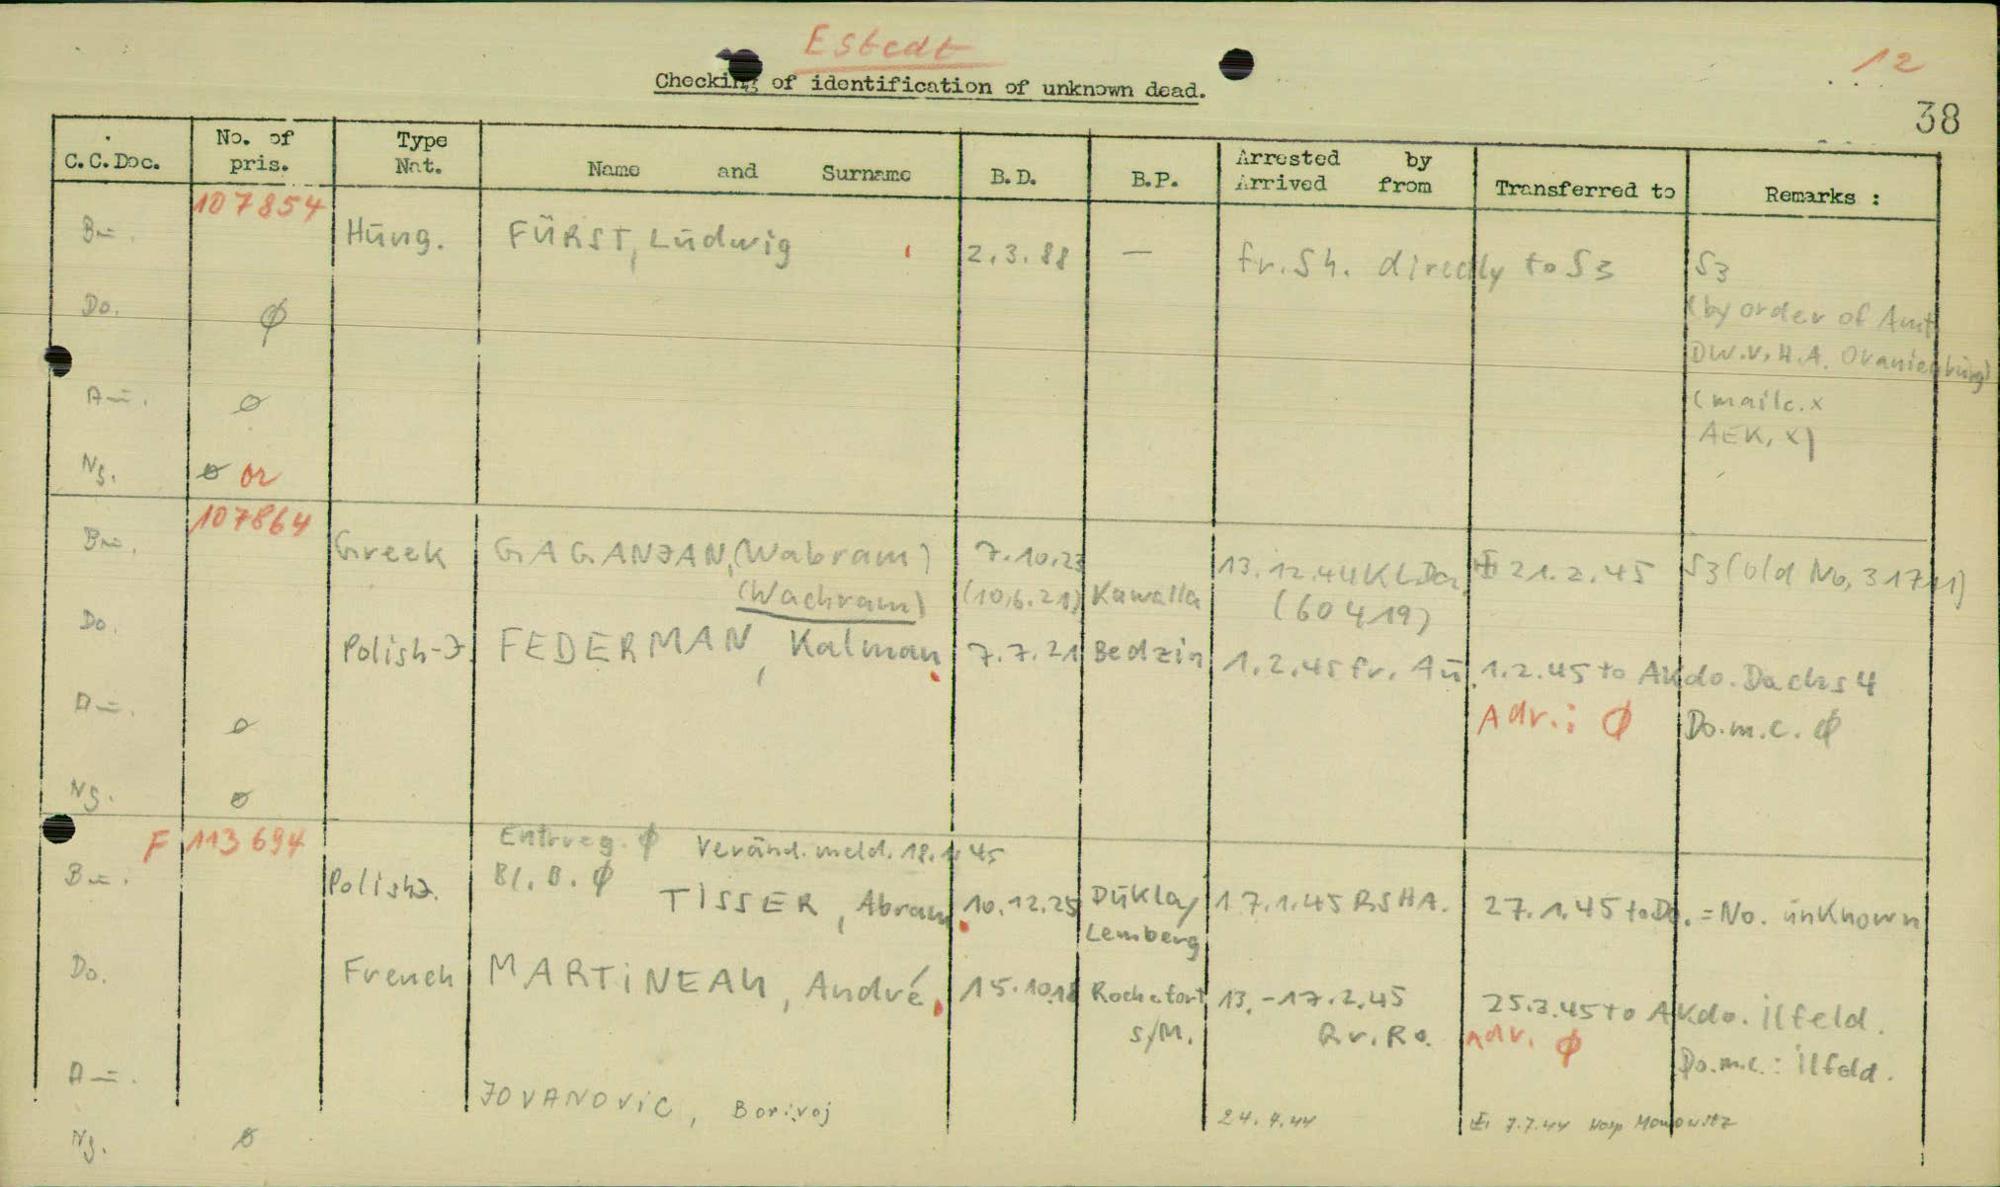 Estedt
12
Checking of identification of unknown dead.
38
C.C.Doc. No. of pris. Type Nat. Name and Surname B.D. B.P. Arrested by Arrived from Transferred to Remarks :
107854
Bū. Hūng. FÜRST, Lūdwig 2.3.88 — fr. Sh. directly to S3 S3
Do. ϕ (by order of Amt
D W.V.H.A. Oranienbūrg)
Aū. ø (mailc. x
AEK, x)
Ng. ø or
107864
Bū. Greek GAGANJAN, (Wabram) 7.10.23 13.12.44 KL.Da. 21.2.45 S3 (old No. 31711)
(Wachram) (10.6.21) Kawalla (60419)
Do. Polish-J. FEDERMAN, Kalman 7.7.21 Bedzin 1.2.45 fr. Aū. 1.2.45 to AKdo. Dachs 4
Aū. ø Adr.: ϕ Do.m.c. ϕ
Ng. ø
F 113694 Entrueg. ϕ Veränd.meld. 18.1.45
Bū. Polish J. Bl.B. ϕ
TISSER, Abram 10.12.25 Dūkla/ 17.1.45 RSHA. 27.1.45 to Do. = No. ūnknown
Lemberg
Do. French MARTiNEAU, André 15.10.18 Rochefort 13.-17.2.45 25.3.45 to AKdo. ilfeld.
s/M. Gr.Ro. Adr. ϕ
Aū. Do.m.c.: ilfeld.
JOVANOViC, Borivoj 24.4.44 7.7.44 Hosp Monowitz
Ng. ø